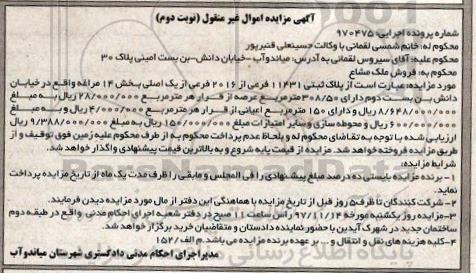 آگهی مزایده اموال غیر منقول (نوبت دوم)
شماره پرونده اجرایی: ۹۷۰۴۷۵
محکوم له: خانم شمسی لقمانی با وکالت حسینعلی قنبرپور
محکوم علیه: آقای سیروس لقمانی به آدرس: میاندوآب-خیابان دانش-بن بست امینی پلاک ۳۰
محکوم به: فروش ملک مشاع
مورد مزایده: عبارت است از پلاک ثبتی ۱۱۴۳۱ فرعی از ۲۰۱۶ فرعی از یک اصلی بخش ۱۴ مراغه واقع در خیابان
دانش بن بست دوم دارای ۳۰۸/۵۰ مترمربع عرصه از قرار هر مترمربع ۲۸/۰۰۰/۰۰۰ ریال به مبلغ
۸/۶۳۸/۰۰۰/۰۰۰ ریال و دارای ۱۵۰ مترمربع اعیانی از قرار هر مترمربع ۴/۰۰۰/۰۰۰ ریال و به مبلغ
۶۰۰/۰۰۰/۰۰۰ ریال و محوطه سازی و سایر امتیازات مبلغ ۱۵۰/۰۰۰/۰۰۰ ریال به مبلغ ۹/۳۸۸/۰۰۰/۰۰۰ ریال
ارزیابی شده با توجه به تقاضای محکوم له و بلحاظ عدم پرداخت محکوم به از طرف محکوم علیه زمین فوق توقیف و از
طریق مزایده فروخته خواهد شد. مزایده از قیمت پایه شروع و به بالاترین قیمت پیشنهادی واگذار خواهد شد.
شرایط مزایده:
۱- برنده مزایده بایستی ده درصد مبلغ پیشنهادی را فی المجلس و مابقی را ظرف مدت یک ماه از تاریخ مزایده پرداخت
نماید.
۲- شرکت کنندگان تا ظرف ۵ روز قبل از تاریخ مزایده با هماهنگی این دفتر از مال مورد مزایده دیدن فرمایند.
۳- مزایده روز یکشنبه مورخه ۹۷/۱۱/۱۴ راس ساعت ۱۱ صبح در دفتر شعبه اجرای احکام مدنی واقع در طبقه دوم
ساختمان جدید در شهرک آیدین با حضور نماینده دادستان و متقاضیان خرید برگزار خواهد شد.
۴- کلیه هزینه های نقل و انتقال و ... بر عهده برنده مزایده می باشد. م الف ۱۵۲/
مدیر اجرای احکام مدنی دادگستری شهرستان میاندوآب